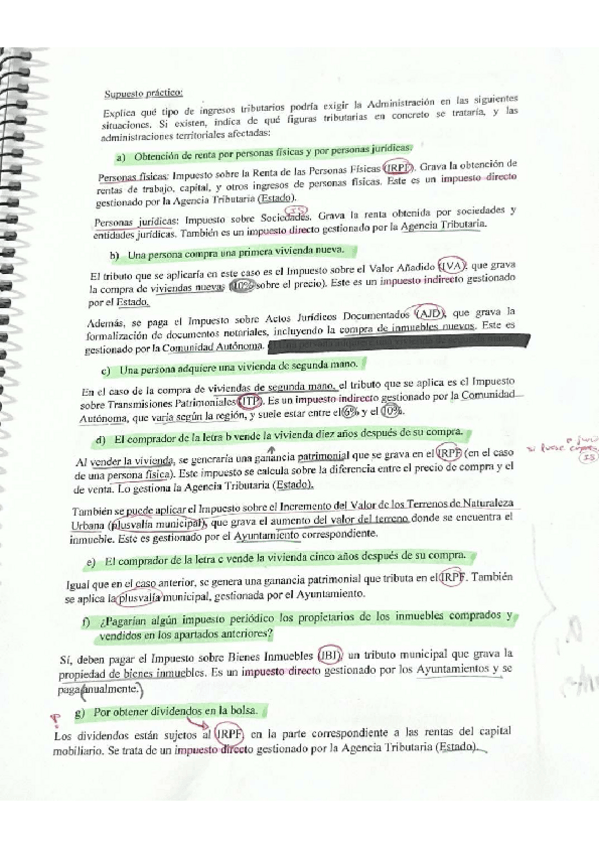 Supuesto práctico:
Explica qué tipo de ingresos tributarios podría exigir la Administración en las siguientes
situaciones. Si existen, indica de qué figuras tributarias en concreto se trataría, y las
administraciones territoriales afectadas:
a) Obtención de renta por personas físicas y por personas jurídicas.
Personas físicas: Impuesto sobre la Renta de las Personas Físicas (IRPF). Grava la obtención de
rentas de trabajo, capital, y otros ingresos de personas físicas. Este es un impuesto directo
gestionado por la Agencia Tributaria (Estado).
IS
Personas jurídicas: Impuesto sobre Sociedades. Grava la renta obtenida por sociedades y
entidades jurídicas. También es un impuesto directo gestionado por la Agencia Tributaria.
b) Una persona compra una primera vivienda nueva.
El tributo que se aplicaría en este caso es el Impuesto sobre el Valor Añadido (IVA), que grava
la compra de viviendas nuevas (10% sobre el precio). Este es un impuesto indirecto gestionado
por el Estado.
Además, se paga el Impuesto sobre Actos Jurídicos Documentados (AJD), que grava la
formalización de documentos notariales, incluyendo la compra de inmuebles nuevos. Este es
gestionado por la Comunidad Autónoma.
c) Una persona adquiere una vivienda de segunda mano.
En el caso de la compra de viviendas de segunda mano, el tributo que se aplica es el Impuesto
sobre Transmisiones Patrimoniales (ITP). Es un impuesto indirecto gestionado por la Comunidad
Autónoma, que varía según la región, y suele estar entre el 6% y el 10%.
d) El comprador de la letra b vende la vivienda diez años después de su compra.
Al vender la vivienda, se generaría una ganancia patrimonial que se grava en el IRPF (en el caso
de una persona física). Este impuesto se calcula sobre la diferencia entre el precio de compra y el
de venta. Lo gestiona la Agencia Tributaria (Estado).
IS
También se puede aplicar el Impuesto sobre el Incremento del Valor de los Terrenos de Naturaleza
Urbana (plusvalía municipal), que grava el aumento del valor del terreno donde se encuentra el
inmueble. Este es gestionado por el Ayuntamiento correspondiente.
e) El comprador de la letra c vende la vivienda cinco años después de su compra.
Igual que en el caso anterior, se genera una ganancia patrimonial que tributa en el IRPF. También
se aplica la plusvalía municipal, gestionada por el Ayuntamiento.
f) ¿Pagarían algún impuesto periódico los propietarios de los inmuebles comprados y
vendidos en los apartados anteriores?
Sí, deben pagar el Impuesto sobre Bienes Inmuebles (IBI), un tributo municipal que grava la
propiedad de bienes inmuebles. Es un impuesto directo gestionado por los Ayuntamientos y se
paga anualmente.
g) Por obtener dividendos en la bolsa.
Los dividendos están sujetos al IRPF, en la parte correspondiente a las rentas del capital
mobiliario. Se trata de un impuesto directo gestionado por la Agencia Tributaria (Estado).